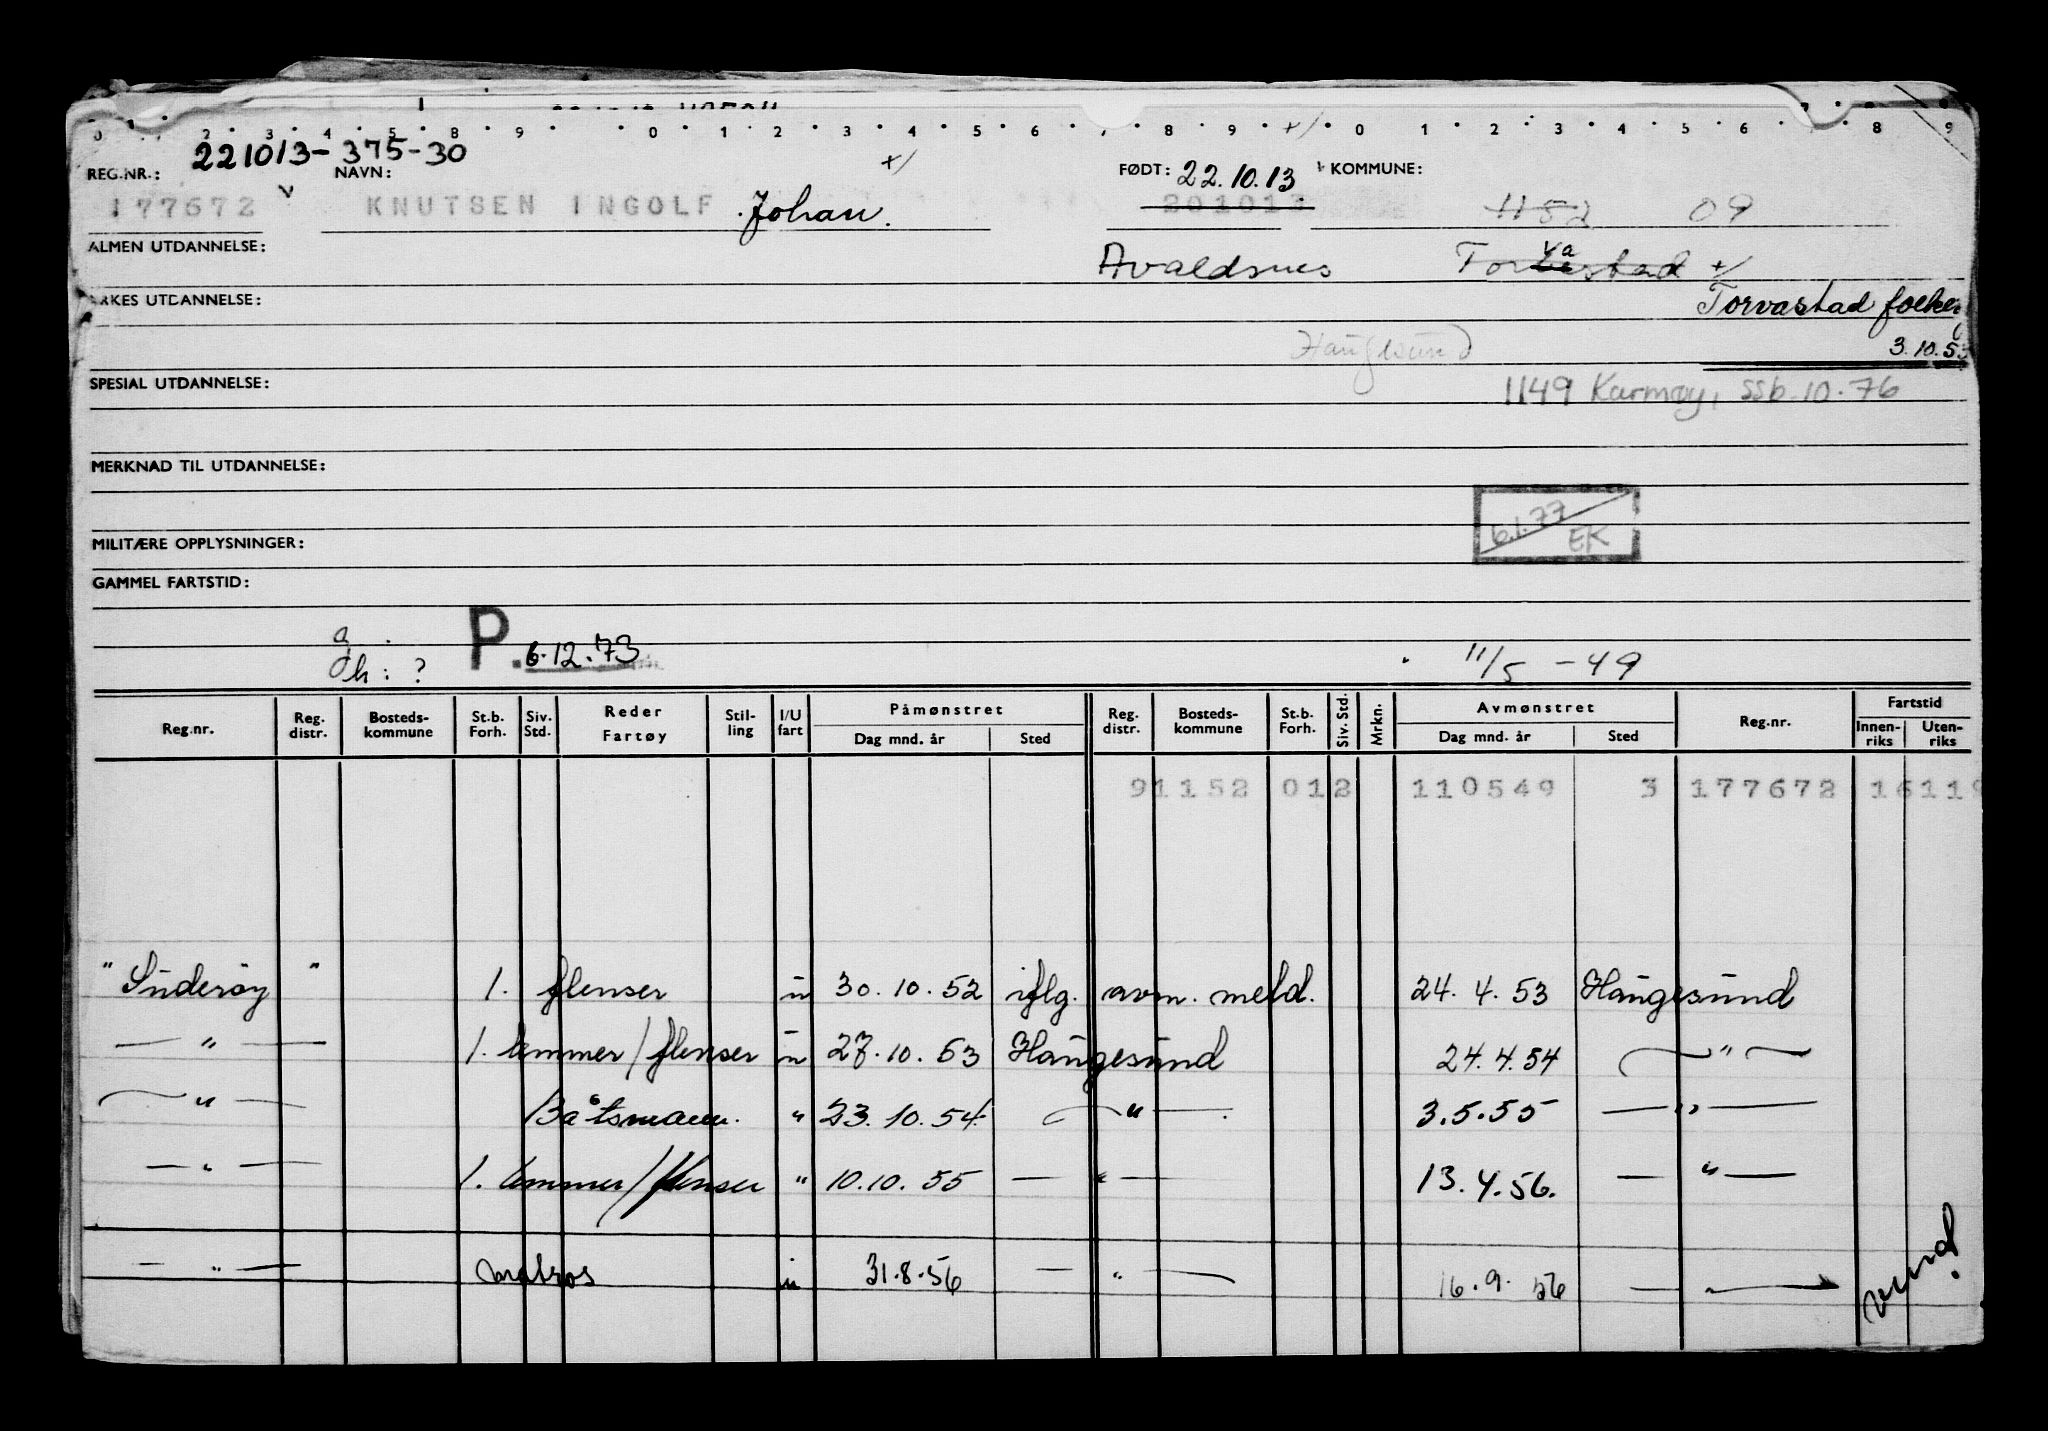 0 2 3 4 5 8 9 0 1 2 3 4 5 6 7 8 9 0 1 2 3 4 5 6 7 8 9
221013-375-30
REG.NR.: NAVN: FØDT: 22.10.13 KOMMUNE:
177672 KNUTSEN INGOLF Johan. 201013 1152 09
ALMEN UTDANNELSE: Avaldsnes Torvastad
YRKES UTDANNELSE: Torvastad folkereg
Haugesund 3.10.53
SPESIAL UTDANNELSE: 1149 Karmøy, SSb.10.76
MERKNAD TIL UTDANNELSE:
6.1.77 EK
MILITÆRE OPPLYSNINGER:
GAMMEL FARTSTID:
P. 6.12.73
Øh: ? 11/5 -49
Reg.nr. Reg. distr. Bosteds-kommune St.b. Forh. Siv. Std. Reder Fartøy Stil-ling I/U fart Påmønstret Dag mnd. år Sted Reg. distr. Bosteds-kommune St.b. Forh. Siv. Std. Mrkn. Avmønstret Dag mnd. år Sted Reg.nr. Fartstid Innen-riks Uten-riks
91152 012 110549 3 177672 16119
"Suderøy" 1. flenser u 30.10.52 iflg. avm. meld. 24.4.53 Haugesund
— " — 1. lemmer/flenser u 27.10.53 Haugesund 24.4.54 — " —
— " — Båtsmann. " 23.10.54 — " — 3.5.55 — " —
— " — 1. lemmer/flenser " 10.10.55 — " — 13.4.56. — " —
— " — matros u 31.8.56 — " — 16.9.56 — " —
vend